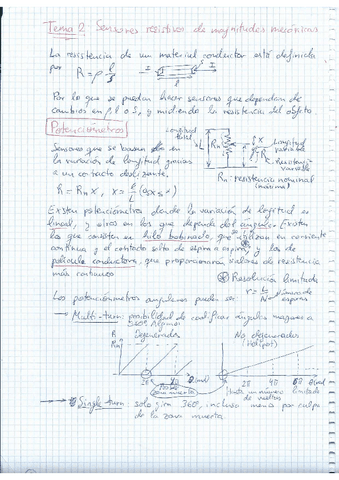 Tema 2: Sensores resistivos de magnitudes mecánicas
La resistencia de un material conductor está definida
por R = ρ l/S
Por lo que se puedan hacer sensores que dependan de
cambios en ρ, l o S, y midiendo la resistencia del objeto
Potenciómetros
Longitud total
Sensores que se basan en
la variación de longitud gracias
a un contacto deslizante.
Longitud variable
Resistencia variable
Rn: resistencia nominal
(máxima)
R = Rn x, x = l/L (0≤x≤1)
Existen potenciómetros donde la variación de longitud es
lineal, y otros en los que depende del ángulo. Existen
los que consisten en hilo bobinado, que utilizan en corriente
continua y el contacto salta de espira a espira, y los de
película conductora, que proporcionan valores de resistencia
más continuos
Resolución limitada
número de espiras
Los potenciómetros angulares pueden ser
→ Multi-turn: posibilidad de codificar ángulos mayores a
360º. Algunos
Degenerados
No degenerados
(Helipot)
R
Rn
2π 4π θ(rad)
2π 4π 6π θ(rad)
Posible zona muerta
Hasta un número limitado
de vueltas
→ Single turn: solo gira 360º, incluso menos por culpa
de la zona muerta